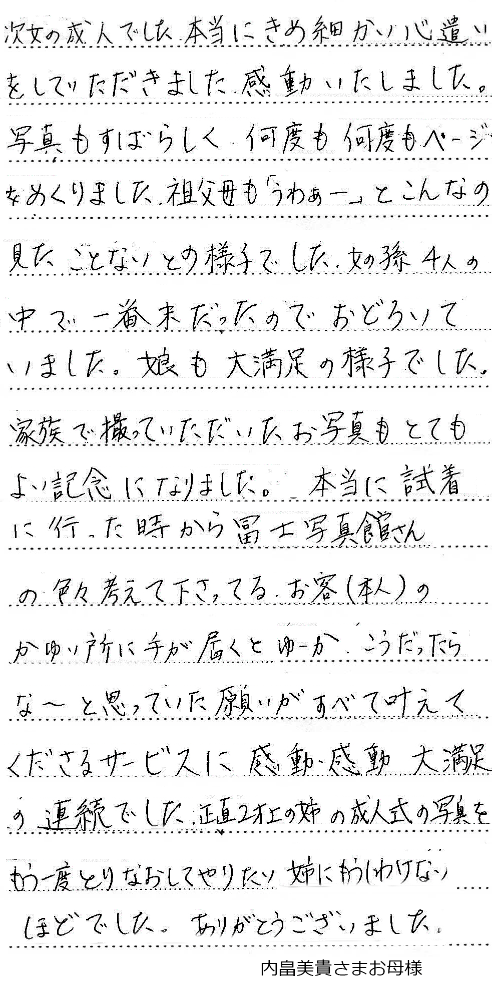 次女の成人でした.本当にきめ細かい心遣い
をしていただきました.感動いたしました。
写真もすばらしく.何度も何度もページ
をめくりました.祖父母も「うわぁー」とこんなの
見たことないとの様子でした.女の孫4人の
中で一番末だったのでおどろいて
いました。娘も大満足の様子でした。
家族で撮っていただいたお写真もとても
よい記念になりました。本当に試着
に行った時から冨士写真館さん
の色々考えて下さってる.お客(本人)の
かゆい所に手が届くとゆーか.こうだったら
な～と思っていた願いがすべて叶えて
くださるサービスに感動・感動 大満足
の連続でした.正直2才上の姉の成人式の写真を
もう一度とりなおしてやりたい 姉にもうしわけない
ほどでした。ありがとうございました。
内畠美貴さまお母様